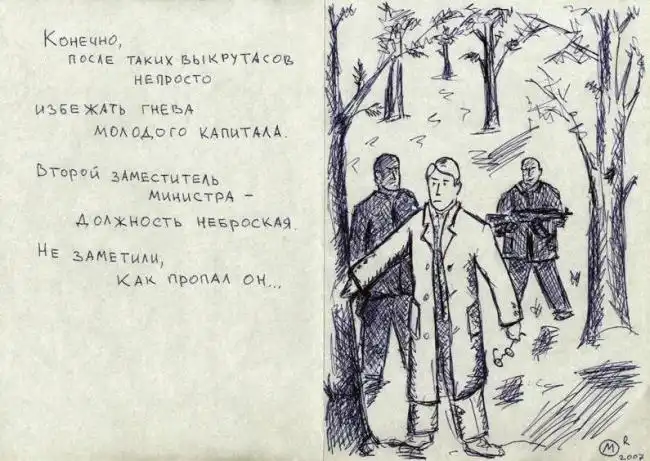 Конечно,
после таких выкрутасов
непросто
избежать гнева
молодого капитала.
Второй заместитель
министра –
должность неброская.
Не заметили,
как пропал он...
M R
2007